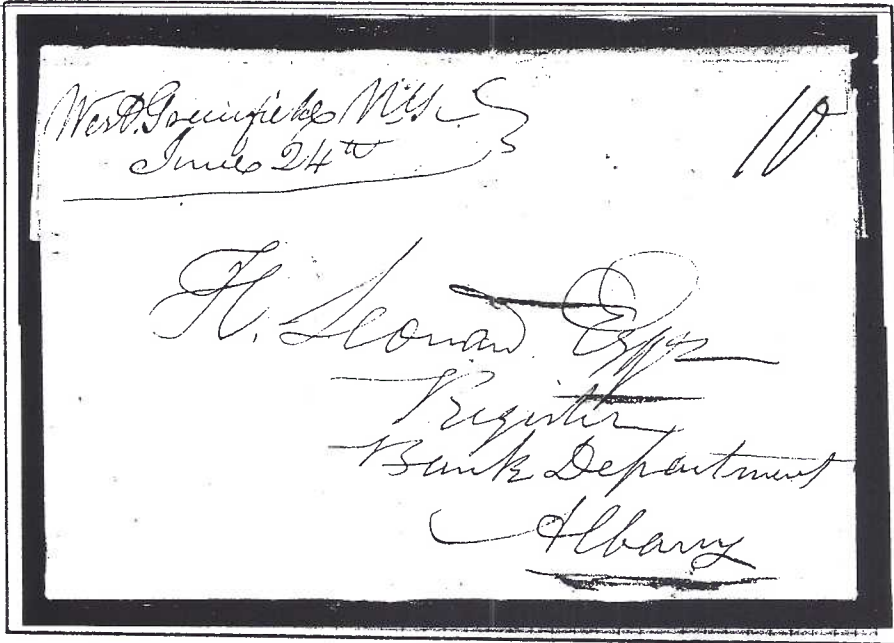 West Greenfield N.Y.
June 24th
10
H. Leonard Esqr
Register
Bank Department
Albany